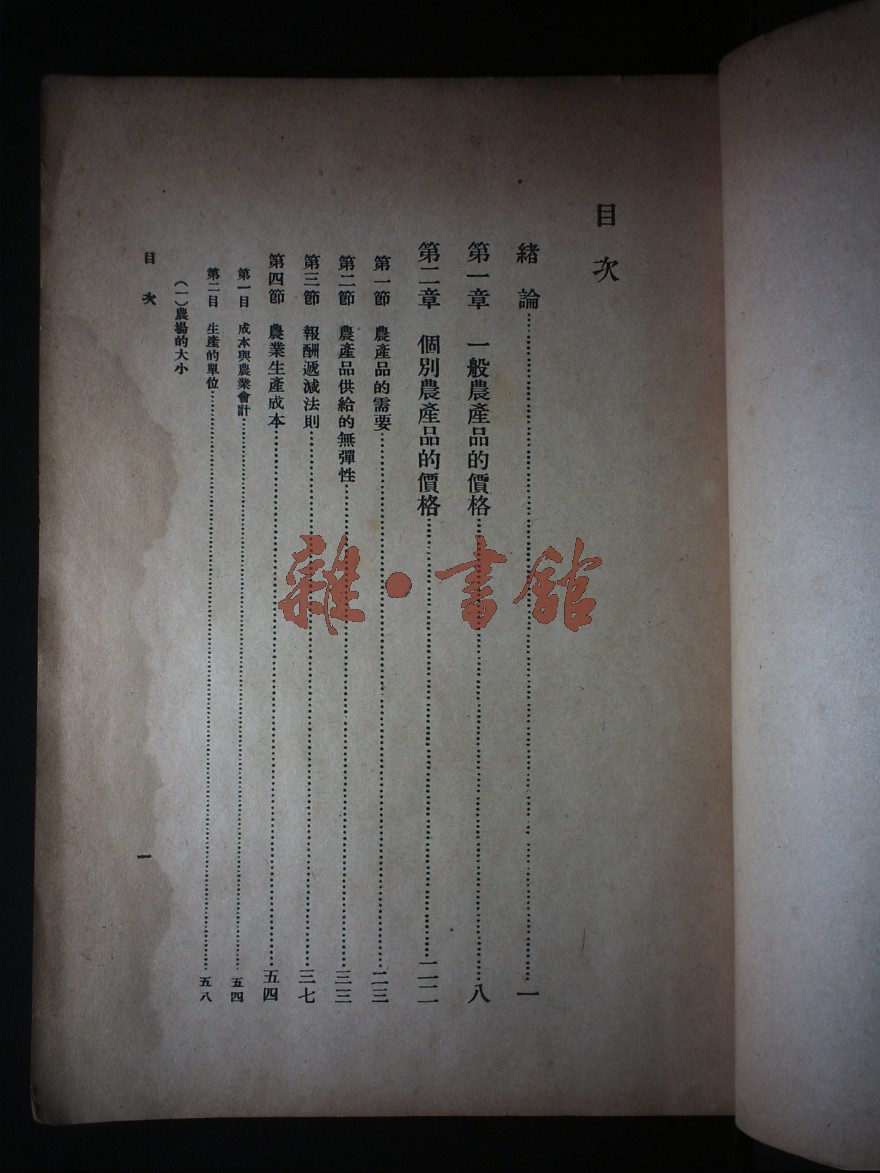 目次
緒論……………………一
第一章 一般農產品的價格……………………八
第二章 個別農產品的價格……………………二二
第一節 農產品的需要……………………二三
第二節 農產品供給的無彈性……………………三三
第三節 報酬遞減法則……………………三七
第四節 農業生產成本……………………五四
第一目 成本與農業會計……………………五四
第二目 生產的單位……………………五八
(一)農場的大小
目次
一
雜·書館